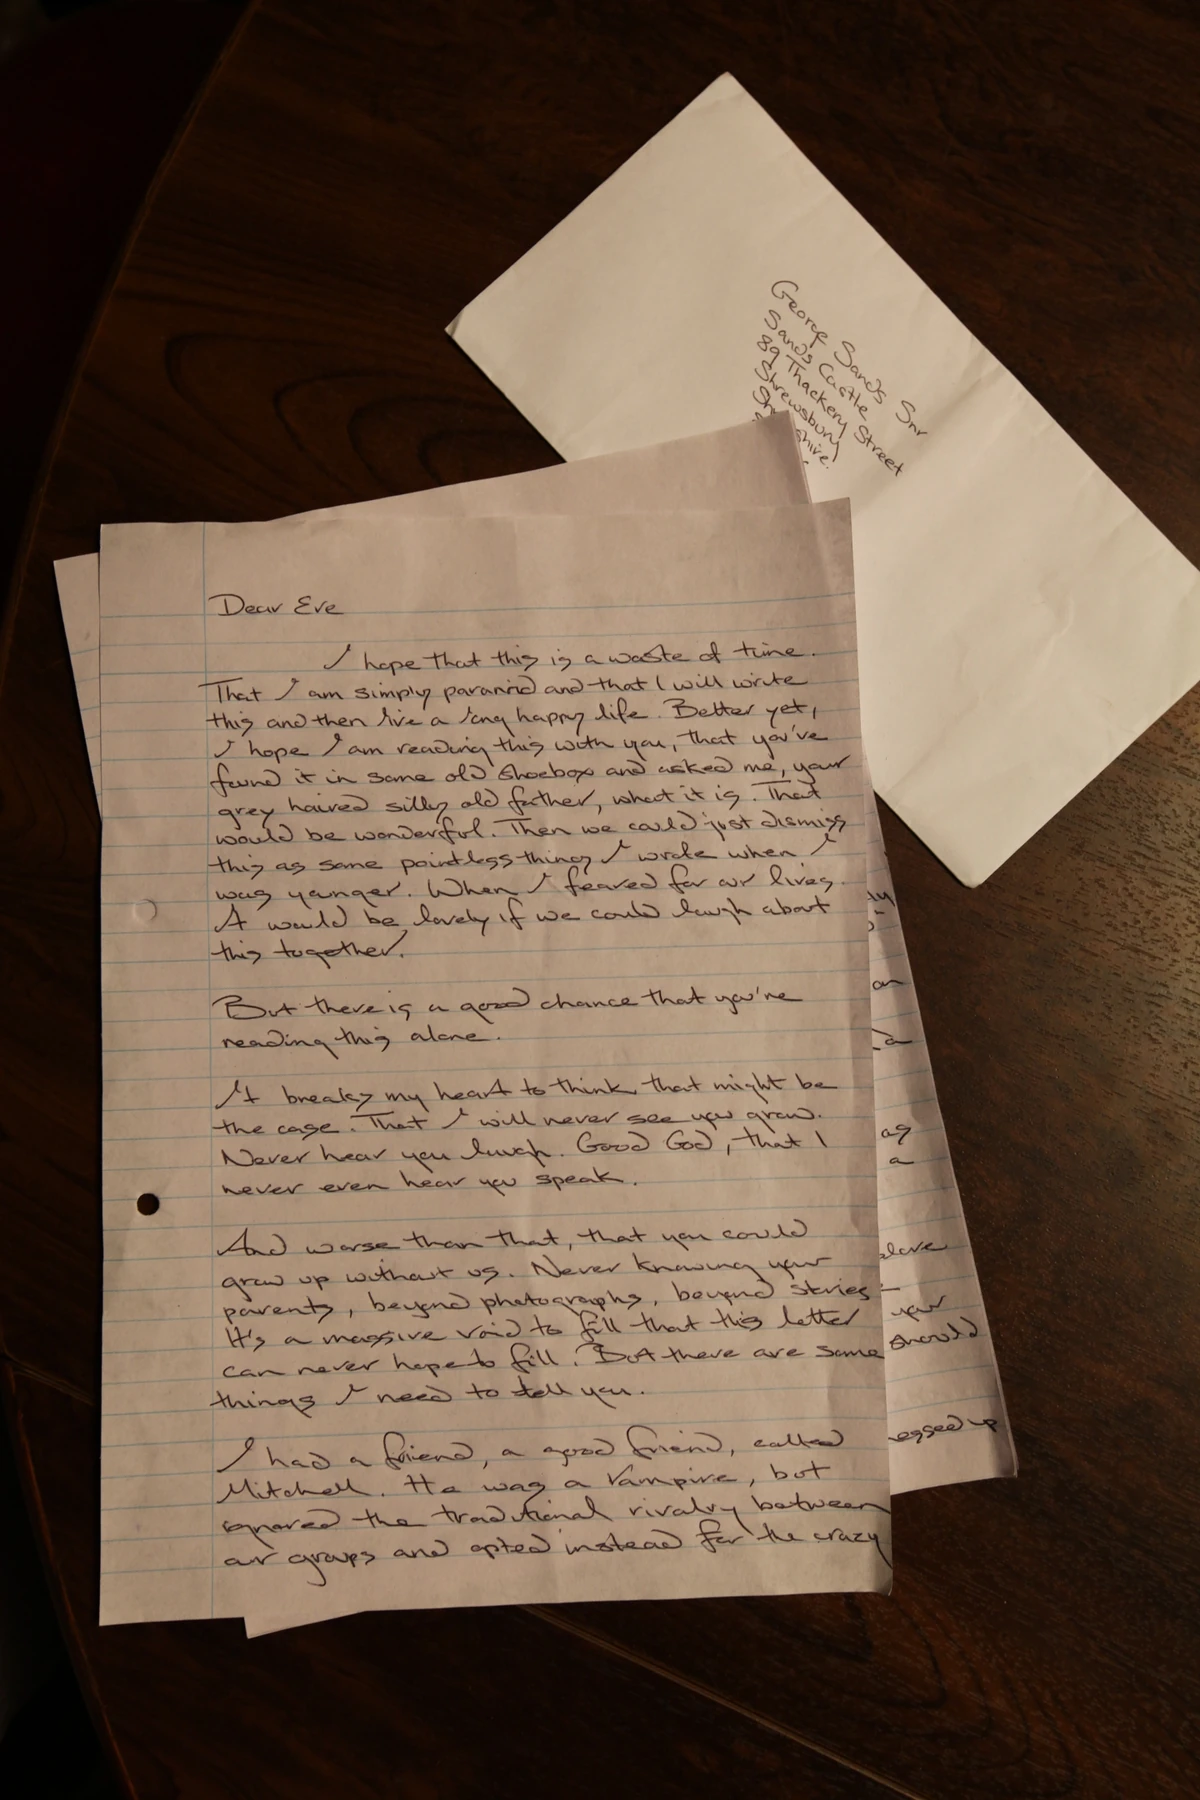 George Sands Snr
Sands Castle
89 Thackery Street
Shrewsbury
Dear Eve
I hope that this is a waste of time.
That I am simply paranoid and that I will write
this and then live a long happy life. Better yet,
I hope I am reading this with you, that you've
found it in some old shoebox and asked me, your
grey haired silly old father, what it is. That
would be wonderful. Then we could just dismiss
this as some pointless thing I wrote when I
was younger. When I feared for our lives.
It would be lovely if we could laugh about
this together.
But there is a good chance that you're
reading this alone.
It breaks my heart to think that might be
the case. That I will never see you grow.
Never hear you laugh. Good God, that I
never even hear you speak.
And worse than that, that you could
grow up without us. Never knowing your
parents, beyond photographs, beyond stories -
It's a massive void to fill that this letter
can never hope to fill. But there are some
things I need to tell you.
I had a friend, a good friend, called
Mitchell. He was a Vampire, but
ignored the traditional rivalry between
our groups and opted instead for the crazy
on
as
a
your
should
up